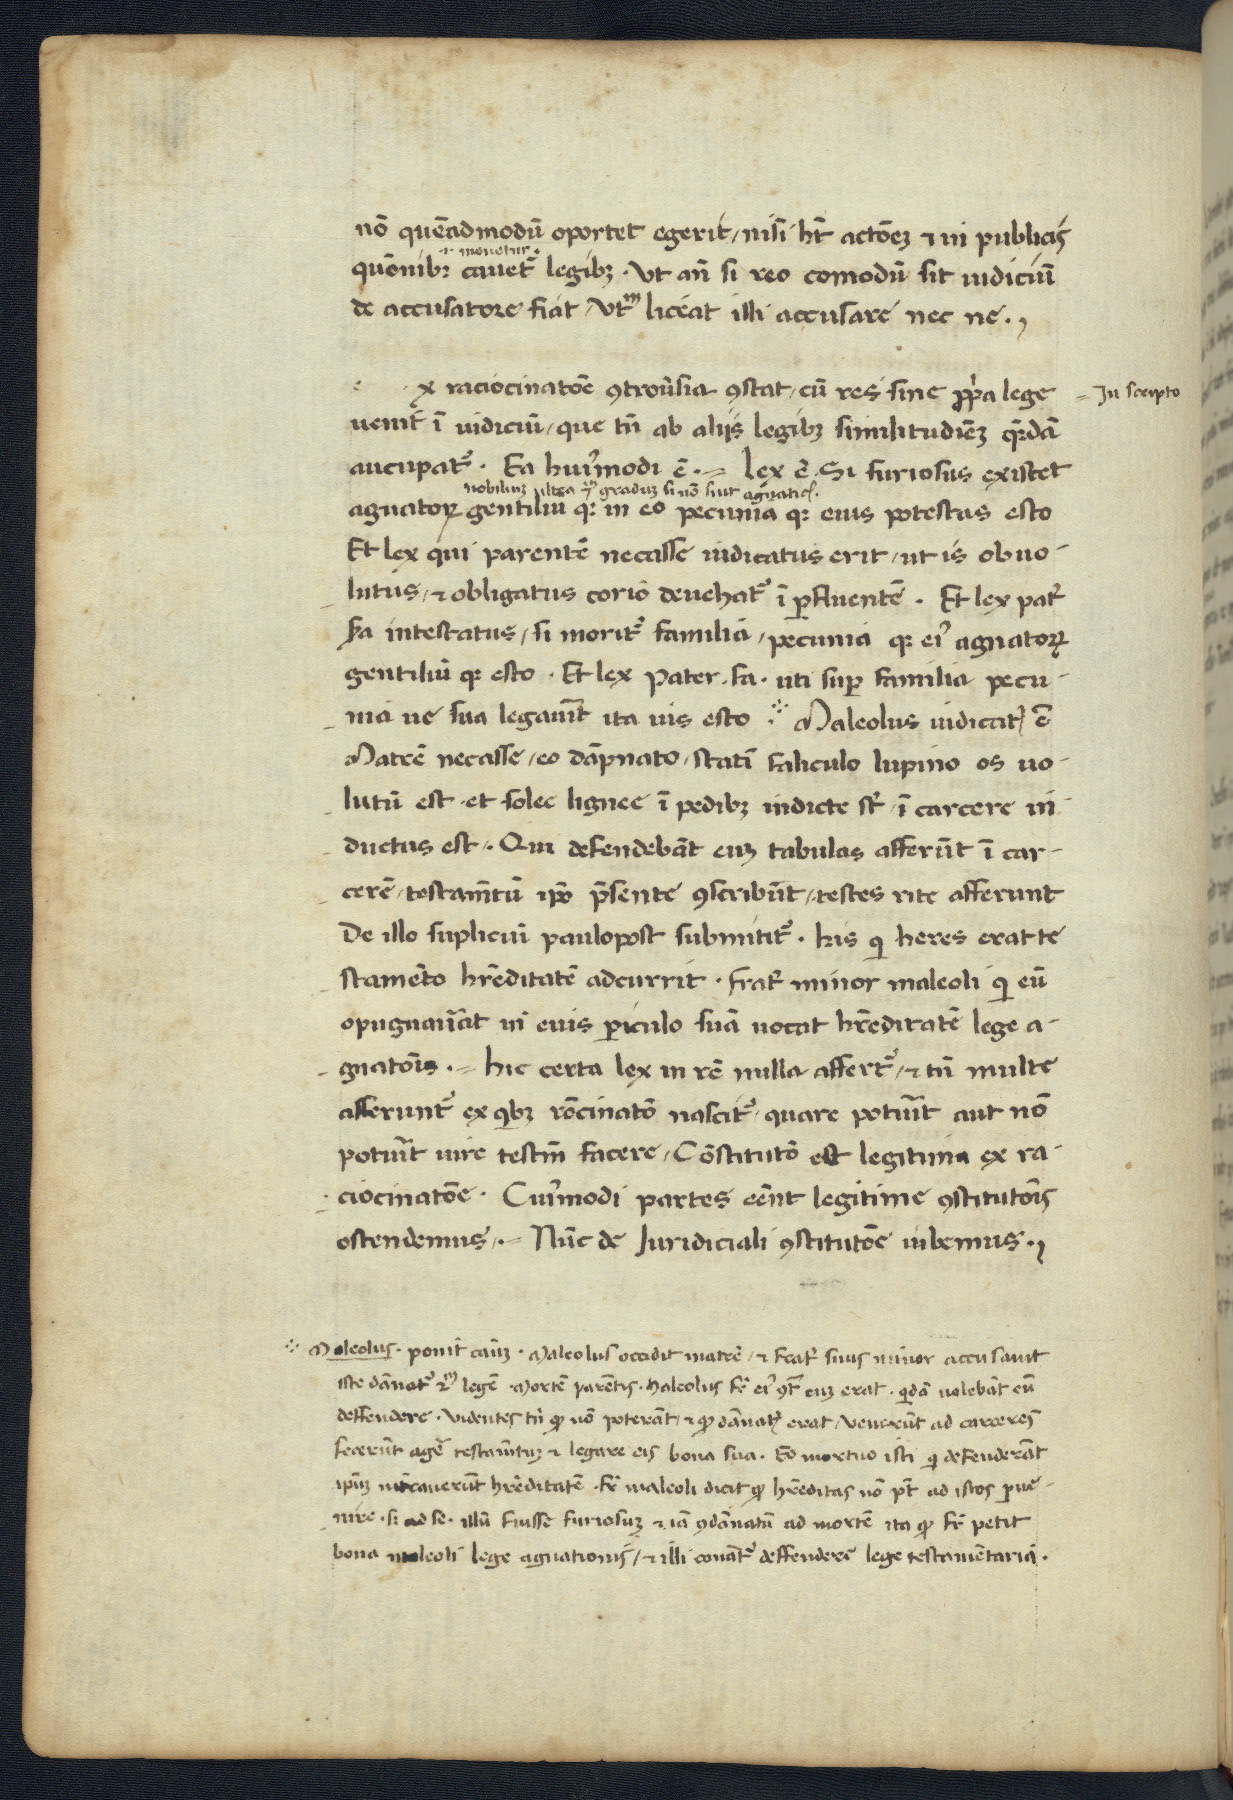 nō quēadmodū oportet egerit, nisi ht̄ actōēꝫ ⁊ in publicis
.i. monetur.
quōnibꝫ cauet᷑ legibꝫ. Vt an̄ si reo comodū sit iudiciū
de accusatore fiat, Vtᵐ liceat illi accusare nec ne.,
e x raciocinatōē ꝯtrou̅sia ꝯstat, cū res sine ꝓpa lege
= In scripto
uenit ī iudiciū, que tn̄ ab alijs legibꝫ similitudiēꝫ qr̄dā
aucupat᷑. Ea hui᷒modi ē. = Lex ē. Si furiosus existet
nobiliuꝫ graduꝫ si nō sint agnatici.
agnatoꝝ gentiliū qꝫ in eo pecunia qꝫ eius potestas esto
Et lex qui parentē necasse iudicatus erit, ut is obuo-
lutus, ⁊ obligatus corio deuehat᷑ ī ꝓfluentē. Et lex pat᷑
fa intestatus, si morit᷑ familia, pecunia qꝫ ei᷒ agnatoꝝ
gentiliū qꝫ esto. Et lex Pater. fa. uti suꝑ familia pecu-
nia ue sua legauīt ita ius esto ⁘ Maleolus iudicat᷒ ē
Matrē necasse, eo dāpnato, statī faliculo lupino os uo-
lutū est et solee lignee ī pedibꝫ indicte st᷑ ī carcere in
ductus est. Qui defendebāt euꝫ tabulas afferūt ī car-
cerē, testam̄tū ip̄o p̄sente ꝯscribūt, testes rite afferunt
De illo supliciū paulopost submitit᷑. his qi heres erat te
stamēto hr̄editatē adcurrit. frat᷑ minor maleoli qi eū
opugnau̅at in̄ euis ꝑiculo suā uocat hr̄editatē lege a-
gnatōis. = hic certa lex in rē nulla affert᷑, ⁊ tn̄ multe
afferunt᷑ ex qbꝫ rōcinatō nascit᷑, quare potu̅it aut nō
potu̅it iure testm̄ facere, Cōstitutō est legitima ex ra-
ciocinatōe. Cui᷒modi partes eēnt legitime ꝯstitutōis
ostendemus. = Nūc de Iuridiciali ꝯstitutōē iubemus.,
⁘ Maleolus. ponit cām. Maleolus occidit matrē, ⁊ frat᷑ suus minor accusauit
iste dānat᷑ legē Mortē parentis. Maleolus fr̄ ei᷒ ꝯt᷑ euꝫ erat. qdā uolebāt eū
deffendere. Videntes tn̄ ꝙ nō poterāt, ⁊ ꝙ dānat᷒ erat, Venerūt ad carceres
fecerūt agē testam̄tuꝫ ⁊ legare eis bona sua. Eo mortuo isti qi defenderāt
ip̄m intrauerūt hr̄editatē. fr̄ maleoli dicit ꝙ hr̄editas nō pt̄ ad istos ꝑue-
nire. si ad se. illū fuisse furiosuꝫ ⁊ iā ꝯdānatū ad mortē ita ꝙ fr̄ petit
bona maleoli lege agnationis, ⁊ illi conāt᷑ deffendere lege testamētaria.